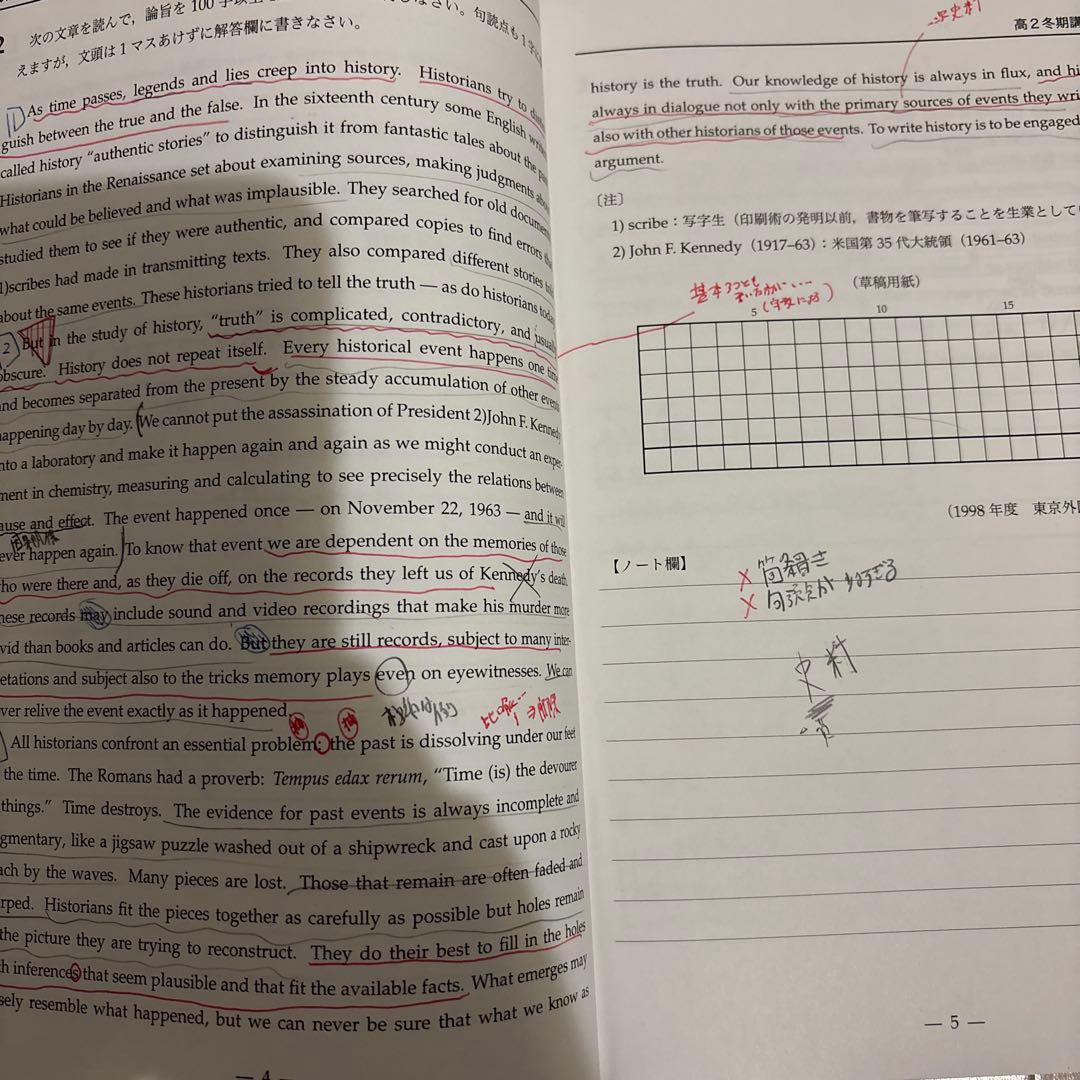 2
次の文章を読んで，論旨を100字以上
なさい。句読点も1字に
えますが，文頭は1マスあけずに解答欄に書きなさい。
As time passes, legends and lies creep into history. Historians try to
guish between the true and the false. In the sixteenth century some English
called history “authentic stories” to distinguish it from fantastic tales about the
Historians in the Renaissance set about examining sources, making judgments
what could be believed and what was implausible. They searched for old
studied them to see if they were authentic, and compared copies to find errors
1)scribes had made in transmitting texts. They also compared different stories
about the same events. These historians tried to tell the truth — as do historians
2 But in the study of history, “truth” is complicated, contradictory, and
obscure. History does not repeat itself. Every historical event happens one
and becomes separated from the present by the steady accumulation of other
happening day by day. We cannot put the assassination of President 2)John F.
nto a laboratory and make it happen again and again as we might conduct an exper-
ment in chemistry, measuring and calculating to see precisely the relations between
ause and effect. The event happened once — on November 22, 1963 — and it will
因果関係
ever happen again. To know that event we are dependent on the memories of those
ho were there and, as they die off, on the records they left us of Kennedy's death.
hese records may include sound and video recordings that make his murder more
vid than books and articles can do. But they are still records, subject to many inter-
etations and subject also to the tricks memory plays even on eyewitnesses. We can
ver relive the event exactly as it happened.
All historians confront an essential problem: the past is dissolving under our feet
the time. The Romans had a proverb: Tempus edax rerum, “Time (is) the devourer
things.” Time destroys. The evidence for past events is always incomplete and
gmentary, like a jigsaw puzzle washed out of a shipwreck and cast upon a rocky
ach by the waves. Many pieces are lost. Those that remain are often faded and
rped. Historians fit the pieces together as carefully as possible but holes remain
the picture they are trying to reconstruct. They do their best to fill in the holes
h inferences that seem plausible and that fit the available facts. What emerges may
sely resemble what happened, but we can never be sure that what we know as
— 4
高2冬期講
history is the truth. Our knowledge of history is always in flux, and
always in dialogue not only with the primary sources of events they
also with other historians of those events. To write history is to be engaged
argument.
〔注〕
1) scribe：写字生（印刷術の発明以前，書物を筆写することを生業として
2) John F. Kennedy（1917–63）：米国第35代大統領（1961–63）
（草稿用紙）
5 10 15
（1998年度 東京外
【ノート欄】
史料
— 5 —